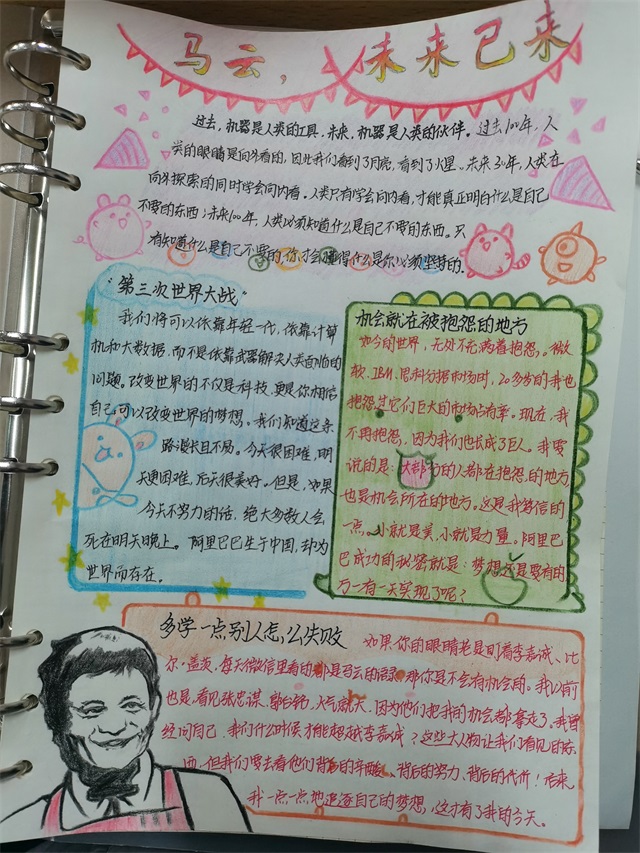 马云，未来已来
过去，机器是人类的工具，未来，机器是人类的伙伴。过去100年，人
类的眼睛是向外看的，因此我们看到了月亮，看到了火星。未来30年，人类在
向外探索的同时学会向内看。人类只有学会向内看，才能真正明白什么是自己
不要的东西；未来100年，人类必须知道什么是自己不要的东西。只
有知道什么是自己不要的，你才会懂得什么是你必须坚持的。
"第三次世界大战"
我们将可以依靠年轻一代，依靠计算
机和大数据，而不是依靠武器解决人类面临的
问题。改变世界的不仅是科技，更是你相信
自己可以改变世界的梦想。我们知道这条
路漫长且不易。今天很困难，明
天更困难，后天很美好。但是，如果
今天不努力的话，绝大多数人会
死在明天晚上。阿里巴巴生于中国，却为
世界而存在。
机会就在被抱怨的地方
如今的世界，无处不充满着抱怨。微
软、IBM、思科分据市场时，20多岁的我也
抱怨过它们巨大的市场占有率。现在，我
不再抱怨，因为我们也长成了巨人。我要
说的是：大部分的人都在抱怨的地方，
也是机会所在的地方。这是我笃信的
一点。小就是美，小就是力量。阿里巴
巴成功的秘密就是：梦想还是要有的，
万一有一天实现了呢？
多学一点别人怎么失败
如果你的眼睛老是盯着李嘉诚、比
尔·盖茨，每天微信里看的都是马云的语录，那你是不会有机会的。我以前
也是，看见张忠谋、郭台铭，火气就大，因为他们把我的机会都拿走了。我曾
经问自己，我们什么时候才能超越李嘉诚？这些大人物让我们看见的好东
西，但我们要去看他们背后的辛酸、背后的努力、背后的代价！后来，
我一点一点地追逐自己的梦想，这才有了我的今天。